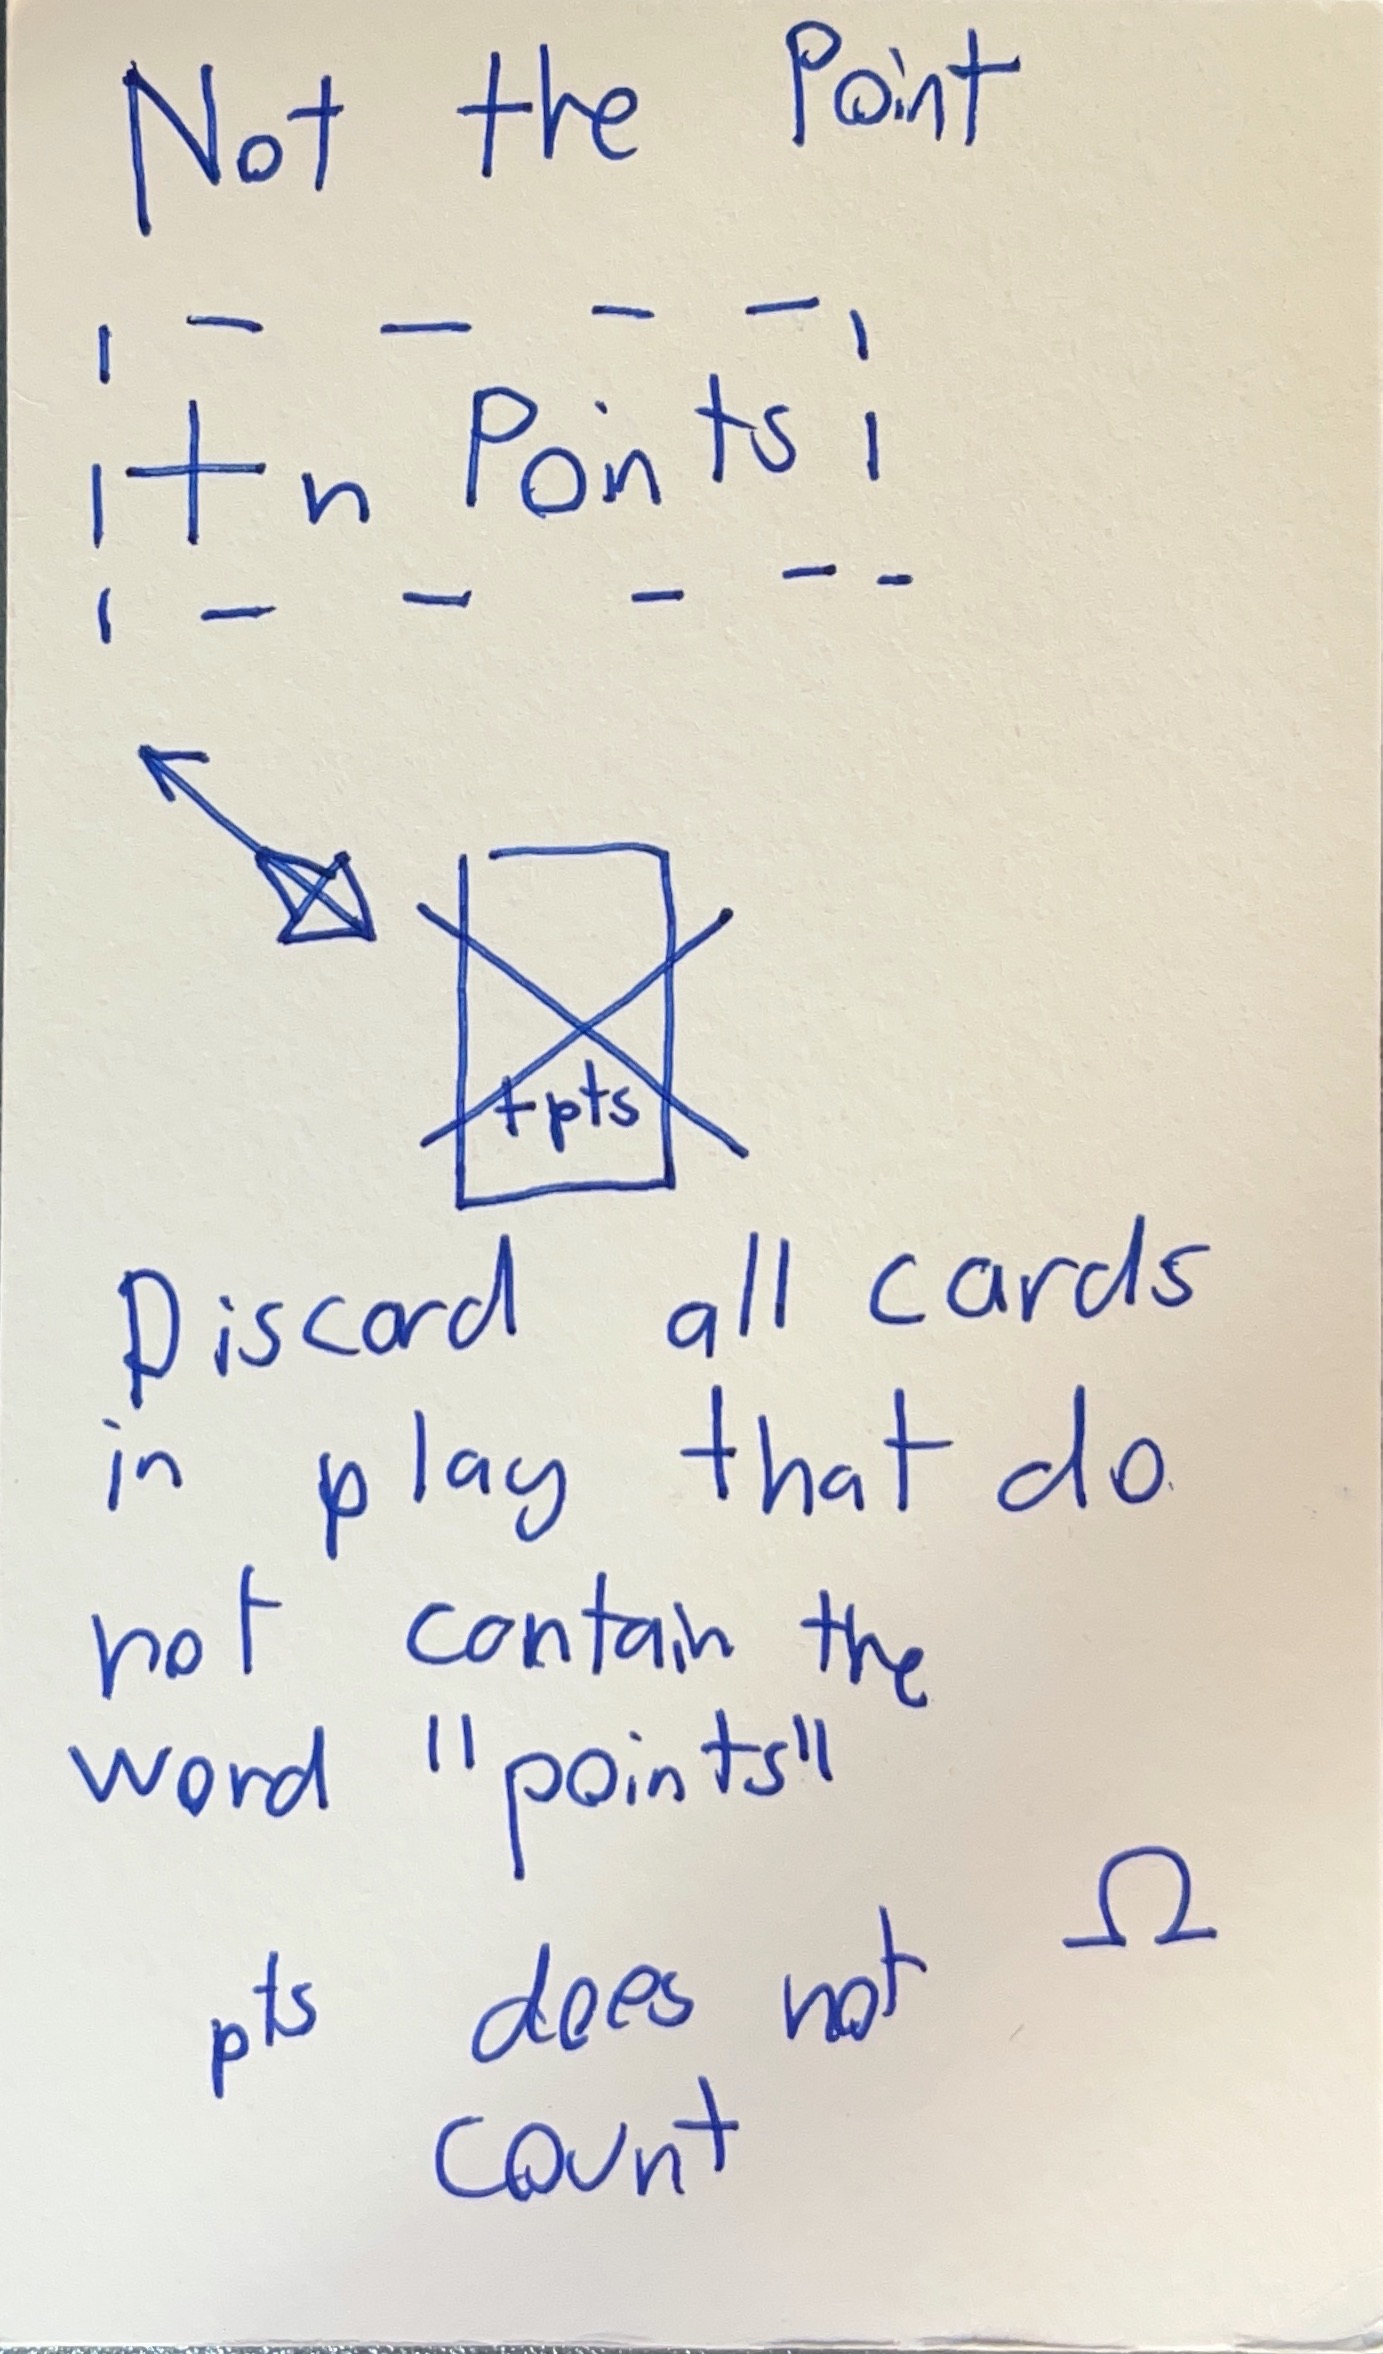 Not the Point
+n Points
+pts
Discard all cards
in play that do
not contain the
word "points"
Ω
pts does not
count